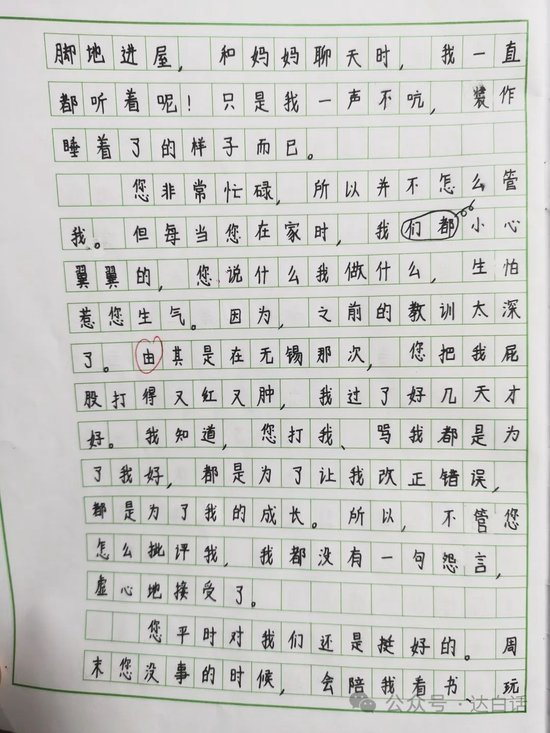 脚地进屋，和妈妈聊天时，我一直
都听着呢！只是我一声不吭，装作
睡着了的样子而已。
您非常忙碌，所以并不怎么管
我。但每当您在家时，我们都小心
翼翼的，您说什么我做什么，生怕
惹您生气。因为，之前的教训太深
了。由其是在无锡那次，您把我屁
股打得又红又肿，我过了好几天才
好。我知道，您打我、骂我都是为
了我好，都是为了让我改正错误，
都是为了我的成长。所以，不管您
怎么批评我，我都没有一句怨言，
虚心地接受了。
您平时对我们还是挺好的。周
末您没事的时候，会陪我看书、玩
公众号·达白话